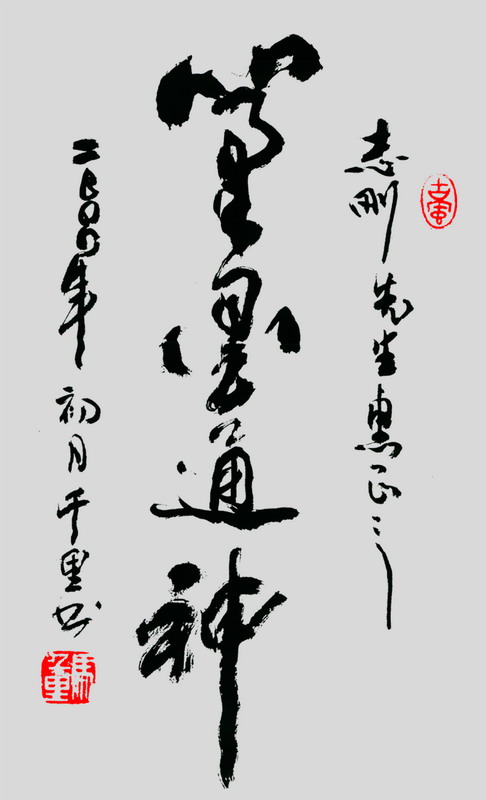 志剛先生惠正之
筆墨通神
二〇〇〇年初月千里书